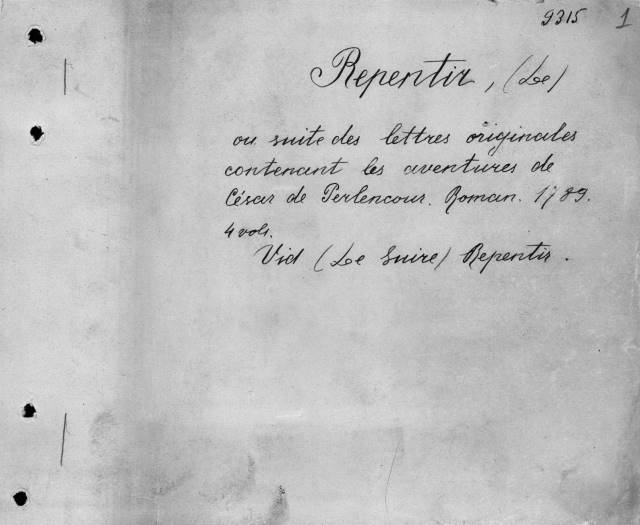 9315 1
Repentir, (Le)
ou suite des lettres originales
contenant les aventures de
César de Perlencour. Roman. 1789.
4 vols.
Vid (Le Suire) Repentir.